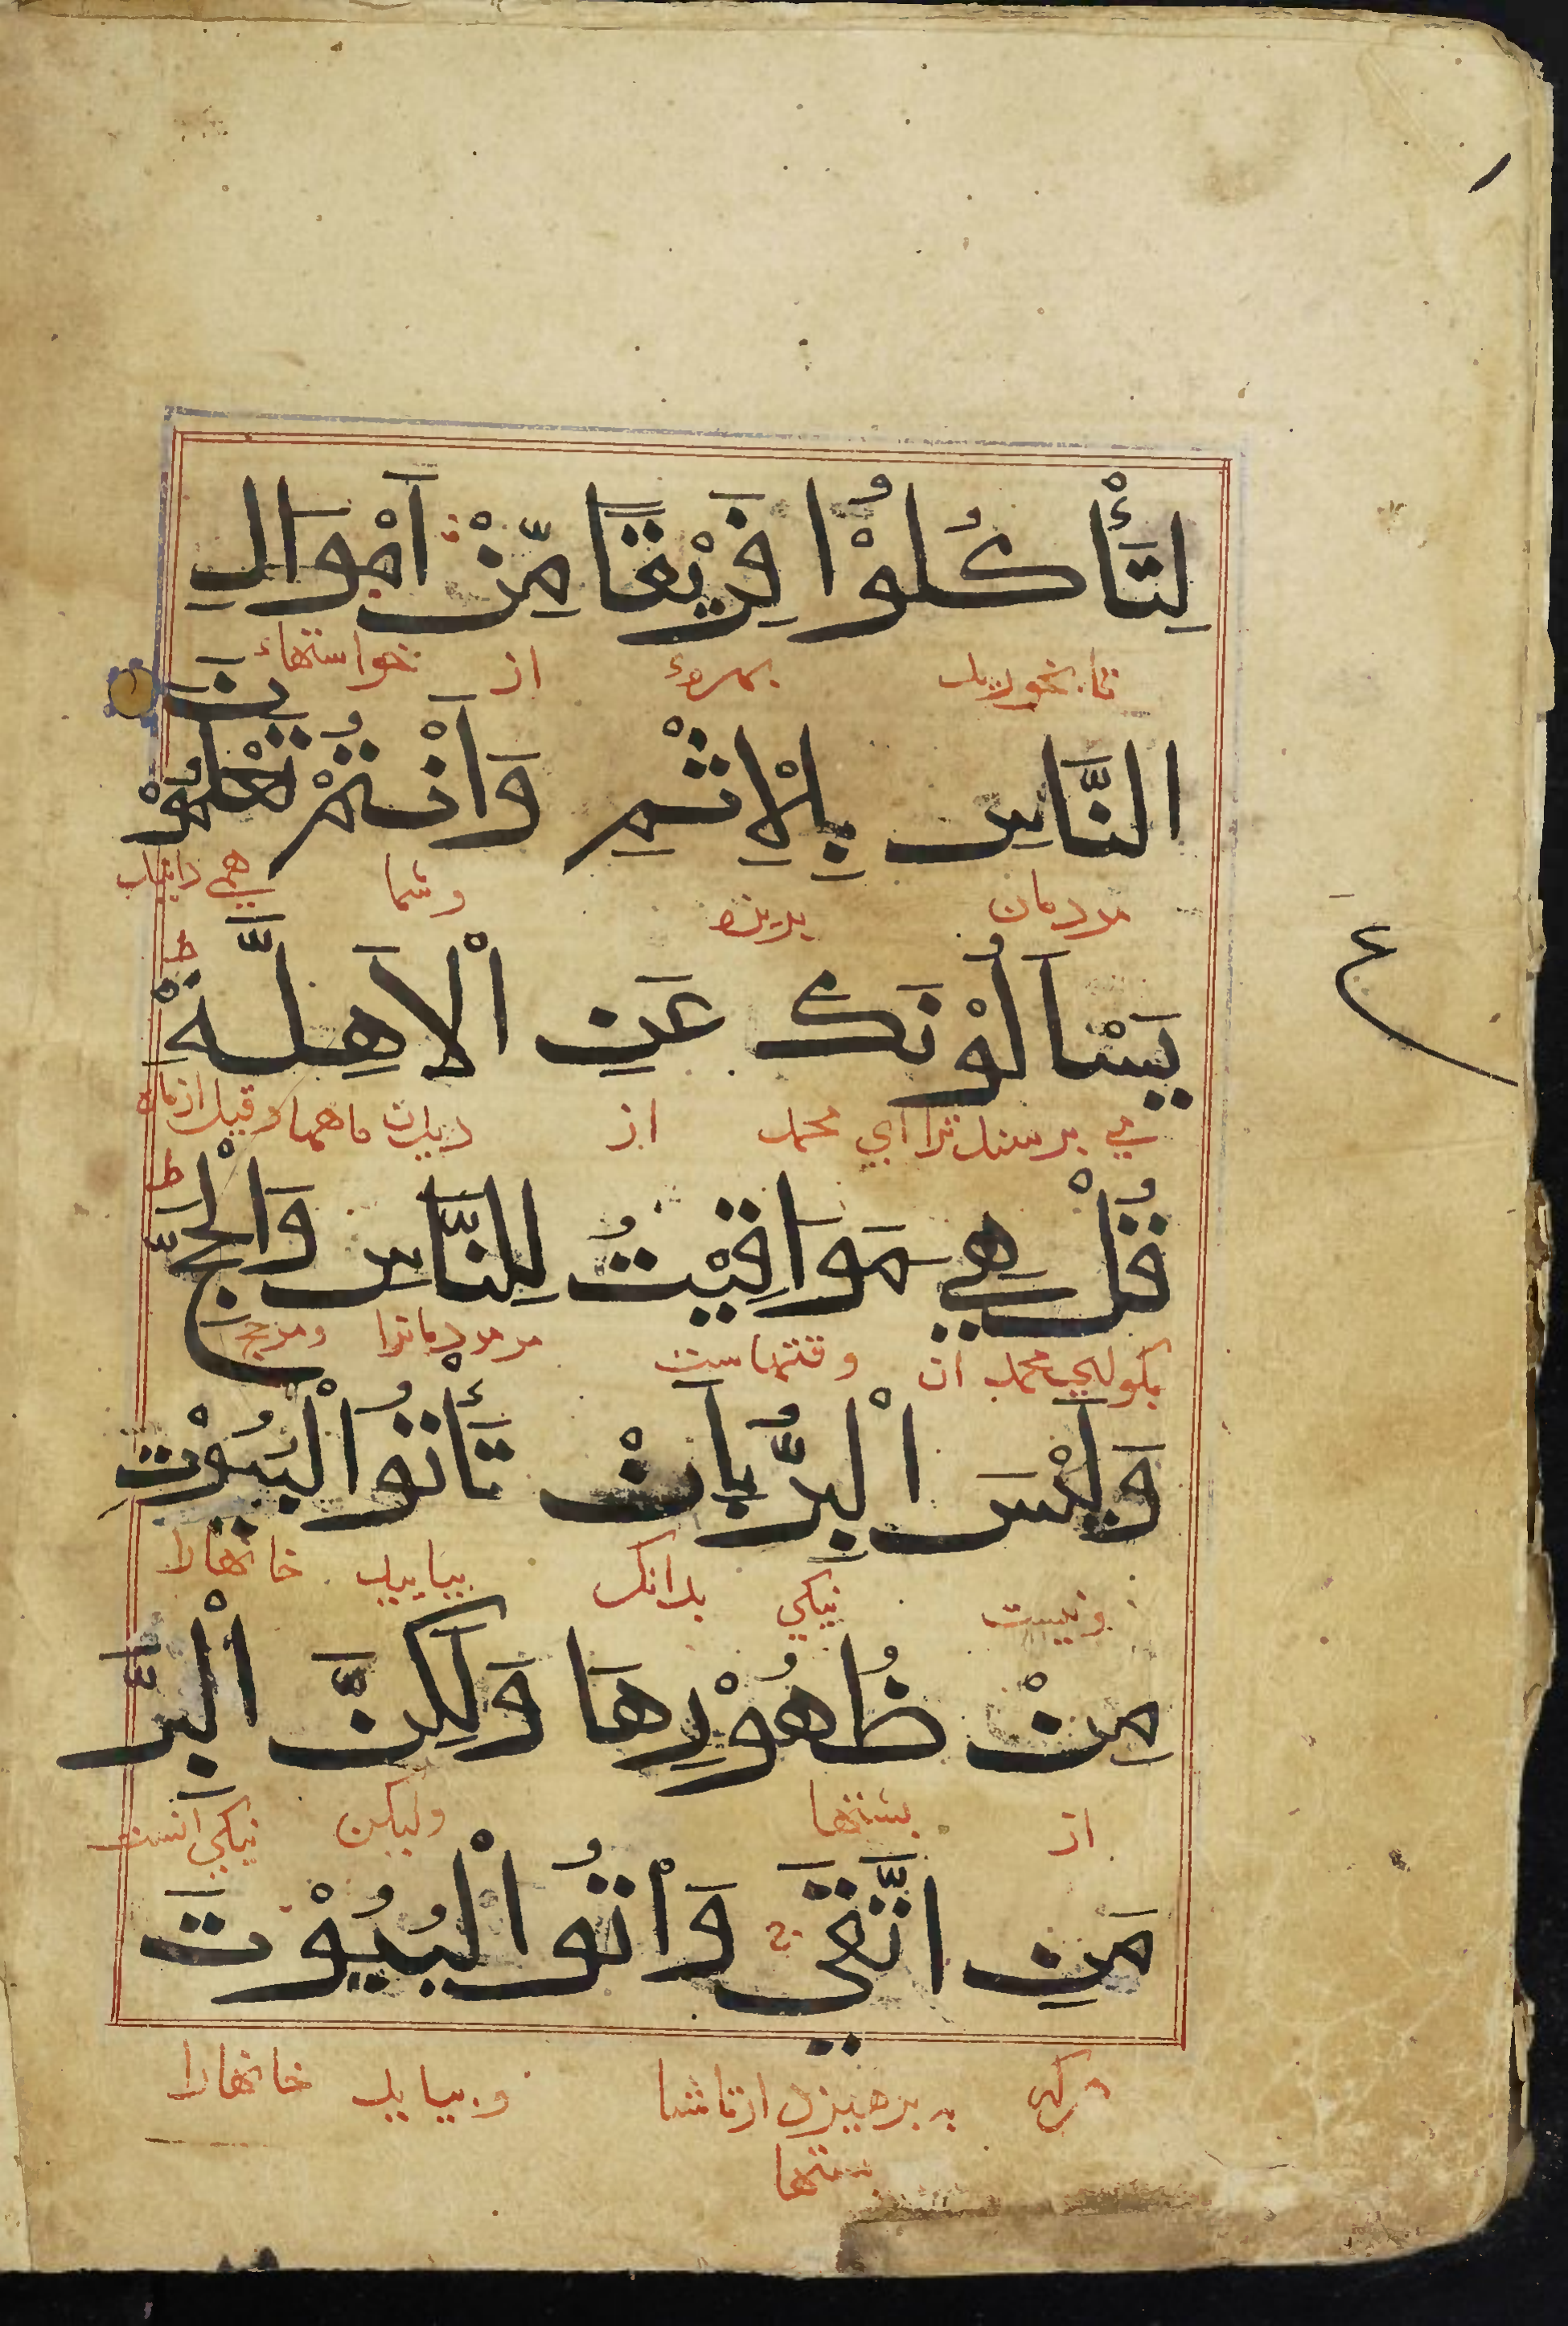 ١
لِتَأْكُلُوْا فَرِيْقًا مِّنْ اَمْوَالِ
تا بخوريد بهرهٔ از خواستهاء
النَّاسِ بِالْاِثْمِ وَاَنْتُمْ تَعْلَمُوْنَ
مردمان ببزه وشما همي دانيد
يَسْاَلُوْنَكَ عَنِ الْاَهِلَّةِ ط
مي برسند ترا اي محمد از ديدن ماهها
ع
قُلْ هِيَ مَوَاقِيْتُ لِلنَّاسِ وَالْحَجِّ ط
بكو اي محمد ان وقتهاست مر مردمانرا ومر حج
وَلَيْسَ الْبِرُّ بِاَنْ تَأْتُوا الْبُيُوْتَ
ونيست نيكي بدانك بياييد خانهارا
مِنْ ظُهُوْرِهَا وَلٰكِنَّ الْبِرَّ
از بشتها وليكن نيكي انست
مَنِ اتَّقَى ج وَاْتُوا الْبُيُوْتَ
هركه به برهيزد از وبياييد خانهارا